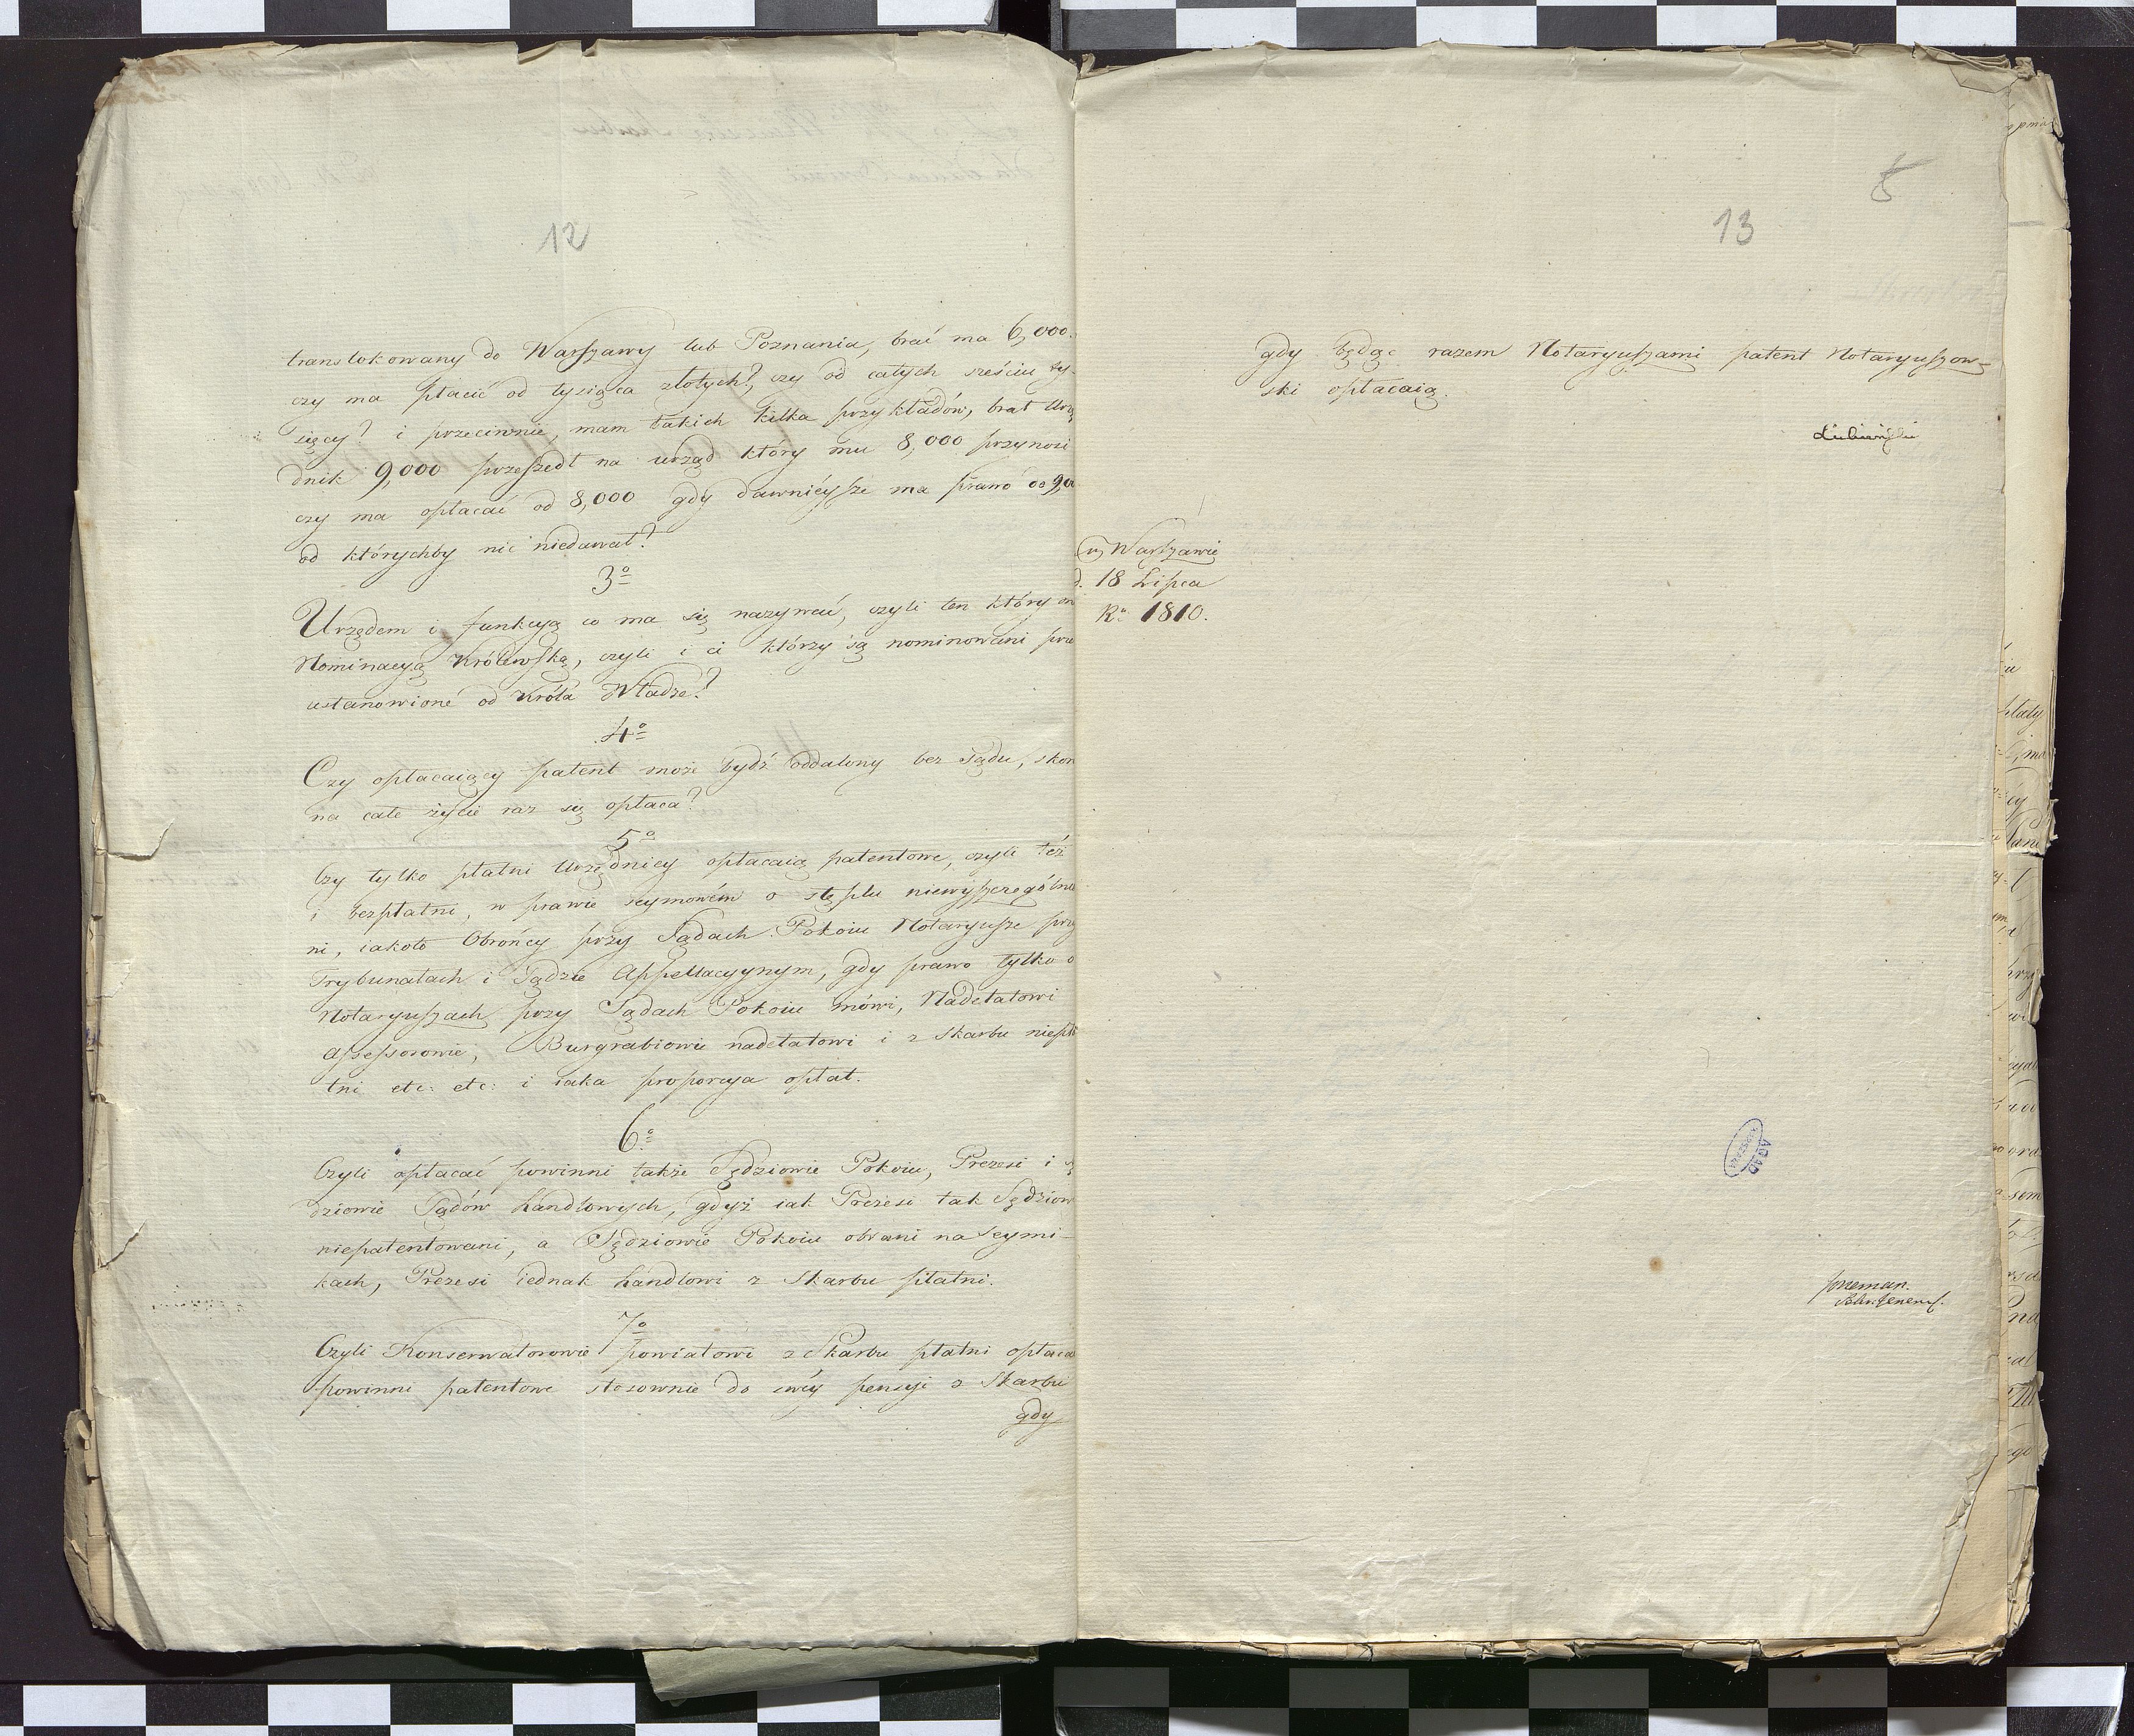 12
translokowany do Warszawy lub Poznania, brać ma 6,000.
czy ma płacić od tysiąca złotych?, czy od całych sześciu ty-
sięcy? i przeciwnie, mam takich kilka przykładów, brał Urzę
dnik 9,000 przeszedł na urząd który mu 8,000 przynosi
czy ma opłacać od 8,000 gdy dawnieysze ma prawo
od którychby nic niedawał?
3o
Urzędem i funkcyą co ma się nazywać, czyli ten który
Nominacyą Królewską, czyli i ci którzy są nominowani prze
ustanowione od Króla Władze?
4o
Czy opłacaiący patent może bydź oddalony bez sądu, skor
na całe życie raz się opłaca?
5o
Czy tylko płatni Urzędnicy opłacaią patentowe, czyli też
i bezpłatni, w prawie seymowém o stęplu niewyszczególnie
ni, iakoto Obrońcy przy Sądach Pokoiu Notaryusze przy
Trybunałach i Sądzie Appellacyynym, gdy prawo tylko o
Notaryuszach przy Sądach Pokoiu mówi, Nadetatowi
Assessorowie, Burgrabiowie nadetatowi i z Skarbu niepła
tni etc: etc: i iaka proporcya opłat.
6o
Czyli opłacać powinni także Sędziowie Pokoiu, Prezesi i Sę
dziowie Sądów handlowych, gdyż iak Prezesi tak Sędziow
niepatentowani, a Sędziowie Pokoiu obrani na Seymi-
kach, Prezesi iednak handlowi z Skarbu płatni.
7o
Czyli Konserwatorowie powiatowi z Skarbu płatni opłaca
powinni patentowe stosownie do swéy pensyi z Skarbu
gdy
5
13
gdy będąc razem Notaryuszami patent Notaryuszow-
ski opłacaią.
Łubieński
w Warszawie
d. 18 Lipca
Ro 1810.
AGAD